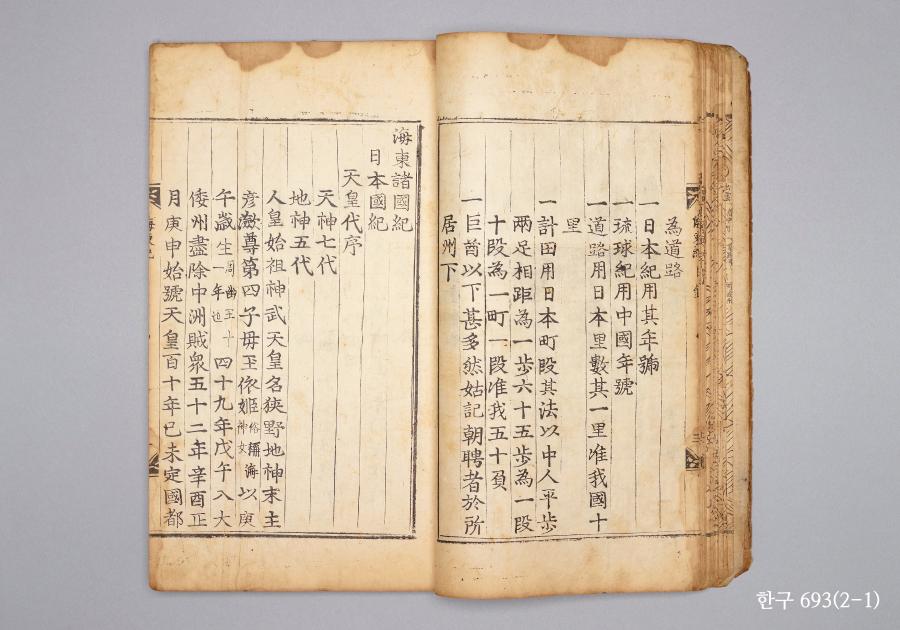 為道路
一日本紀用其年號
一琉球紀用中國年號
一道路用日本里數其一里准我國十
里
一計田用日本町段其法以中人平步
兩足相距為一步六十五步為一段
十段為一町一段准我五十負
一巨酋以下甚多然姑記朝聘者於所
居州下
海東諸國紀
日本國紀
天皇代序
天神七代
地神五代
人皇始祖神武天皇名狹野地神末主
彦瀲尊第四子母玉依姬俗稱海神女以庚
午歲生周幽王十一年也四十九年戊午入大
倭州盡除中洲賊衆五十二年辛酉正
月庚申始號天皇百十年己未定國都
한구 693(2-1)